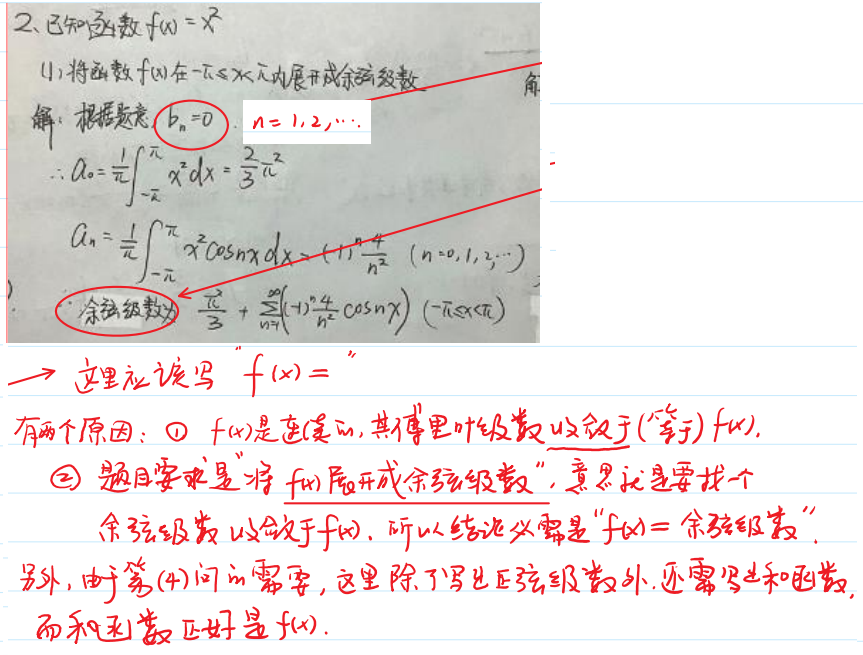 2、已知函数 f(x) = x²
(1) 将函数 f(x) 在 -π≤x<π 内展开成余弦级数
解
解：根据题意 bₙ=0 . n = 1, 2, ….
∴ a₀ = 1/π ∫_{-π}^{π} x² dx = 2/3 π²
aₙ = 1/π ∫_{-π}^{π} x² cosnx dx = (-1)ⁿ 4/n² (n=0,1,2,…)
∴ 余弦级数为 π²/3 + ∑_{n=1}^{∞} ((-1)ⁿ 4/n² cosnx) (-π≤x<π)
→ 这里应该写 “f(x) = ”
有两个原因: ① f(x)是连续的, 其傅里叶级数收敛于(等于) f(x).
② 题目要求是“将 f(x) 展开成余弦级数”, 意思就是要找一个
余弦级数收敛于 f(x). 所以结论必需是“f(x) = 余弦级数”.
另外, 由于第(4)问的需要, 这里除了写出正弦级数外. 还需写出和函数,
而和函数正好是 f(x).